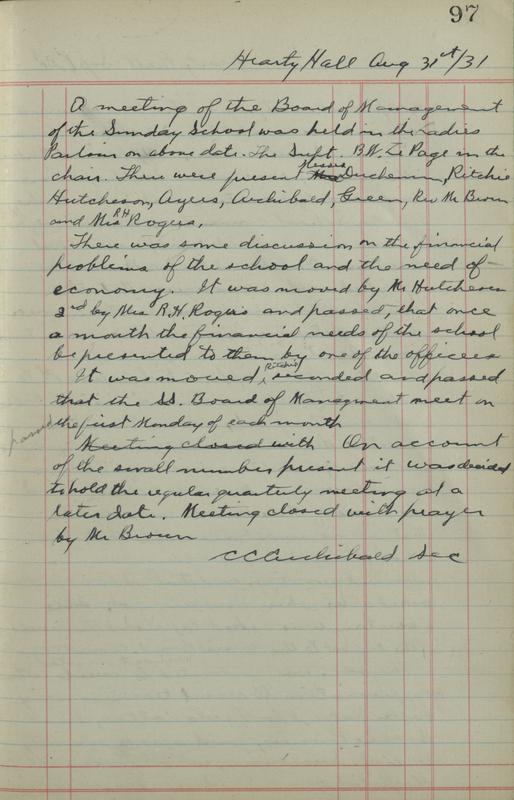 97
Hearty Hall Aug 31st/31
A meeting of the Board of Management
of the Sunday School was held in the Ladies
Parlour on above date. The Supt. B.W. LePage in the
chair. There were present Messrs Duchemin, Ritchie
Hutcheson, Ayers, Archibald, Green, Rev Mr Brown
and Mrs R.H. Rogers.
There was some discussion on the financial
problems of the school and the need of
economy. It was moved by Mr Hutcheson
2nd by Mrs R.H. Rogers and passed, that once
a month the financial needs of the school
be presented to them by one of the officers
It was moved, Ritchie seconded and passed
that the S.S. Board of Managment meet on
passed the first Monday of each month
Meeting closed with On account
of the small number present it was decided
to hold the regular quarterly meeting at a
later date. Meeting closed with prayer
by Mr Brown
C C Archibald Sec